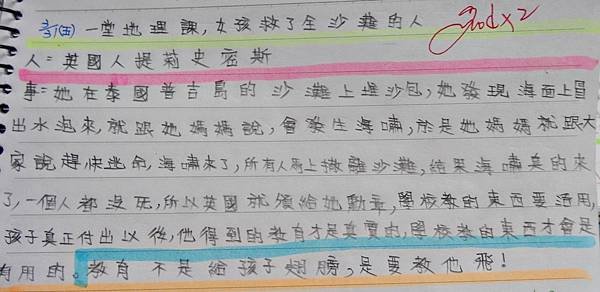 一堂地理課,女孩救了全沙灘的人
Good x2
人:英國人提莉史密斯
事:她在泰國普吉島的沙灘上堆沙包,她發現海面上冒
出水泡來,就跟她媽媽說,會發生海嘯,於是她媽媽就跟大
家說趕快逃命,海嘯來了,所有人馬上撤離沙灘,結果海嘯真的來
了,一個人都沒死,所以英國就頒給她動章,學校教的東西要活用,
孩子真正付出以後,他得到的教育才是真實的,學校教的東西才會是
有用的。教育不是給孩子翅膀,是要教他飛!